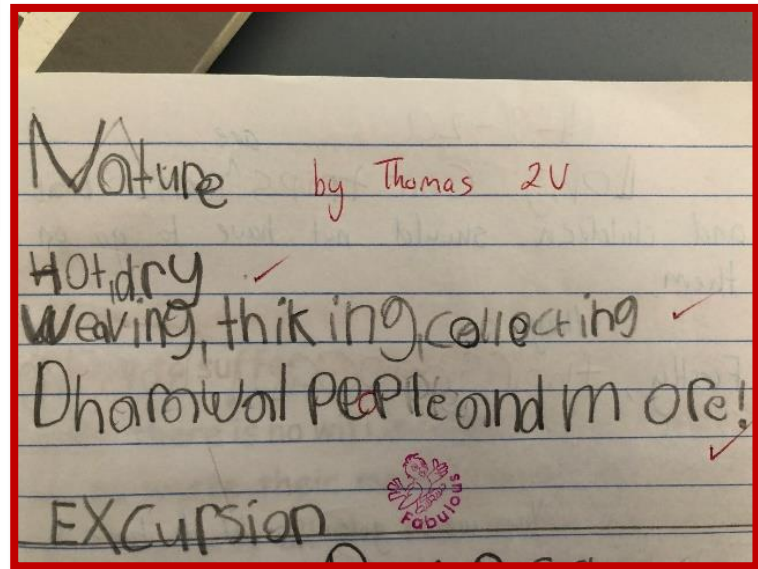 Nature by Thomas 2V
Hot, dry
Weaving, thiking, collecting
Dharawal people and more!
Fabulous
EXcursion